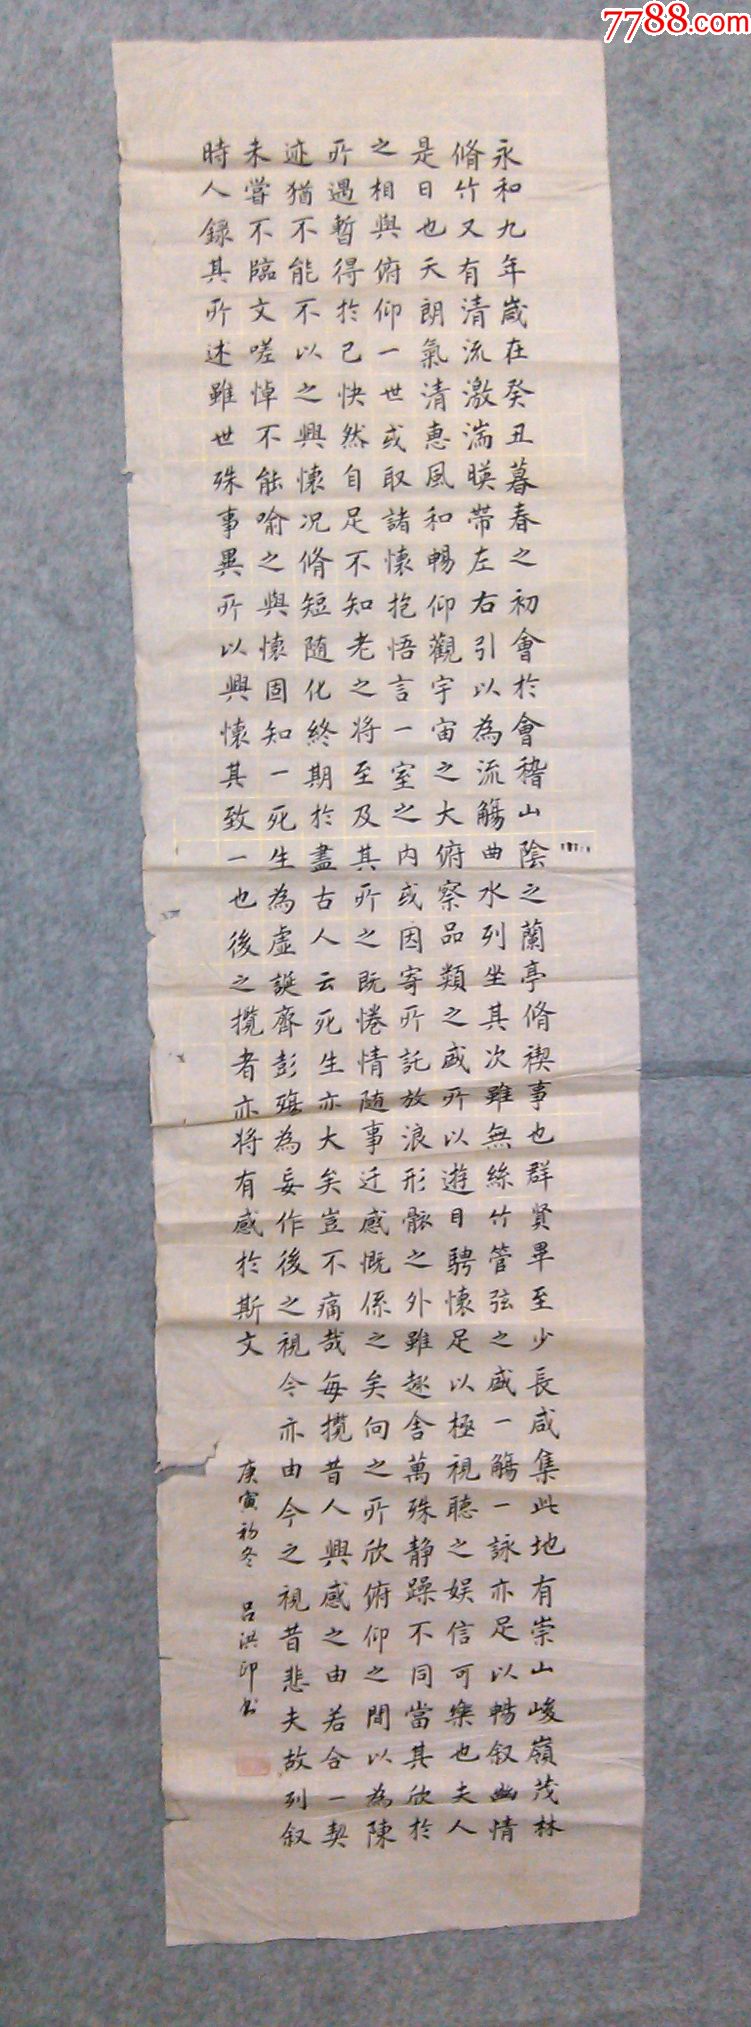 7788.com
永和九年歲在癸丑暮春之初會於會稽山陰之蘭亭脩禊事也群賢畢至少長咸集此地有崇山峻嶺茂林
脩竹又有清流激湍暎帶左右引以為流觴曲水列坐其次雖無絲竹管弦之盛一觴一詠亦足以暢叙幽情
是日也天朗氣清惠風和暢仰觀宇宙之大俯察品類之盛所以遊目騁懷足以極視聽之娱信可樂也夫人
之相與俯仰一世或取諸懷抱悟言一室之内或因寄所託放浪形骸之外雖趣舍萬殊静躁不同當其欣於
所遇暫得於己快然自足不知老之将至及其所之既惓情随事迁感慨係之矣向之所欣俯仰之間以為陳
迹猶不能不以之興懷况脩短随化終期於盡古人云死生亦大矣豈不痛哉每攬昔人興感之由若合一契
未嘗不臨文嗟悼不能喻之與懷固知一死生為虛誕齊彭殤為妄作後之視今亦由今之視昔悲夫故列叙
時人録其所述雖世殊事異所以興懷其致一也後之攬者亦将有感於斯文
庚寅初冬 吕洪印书